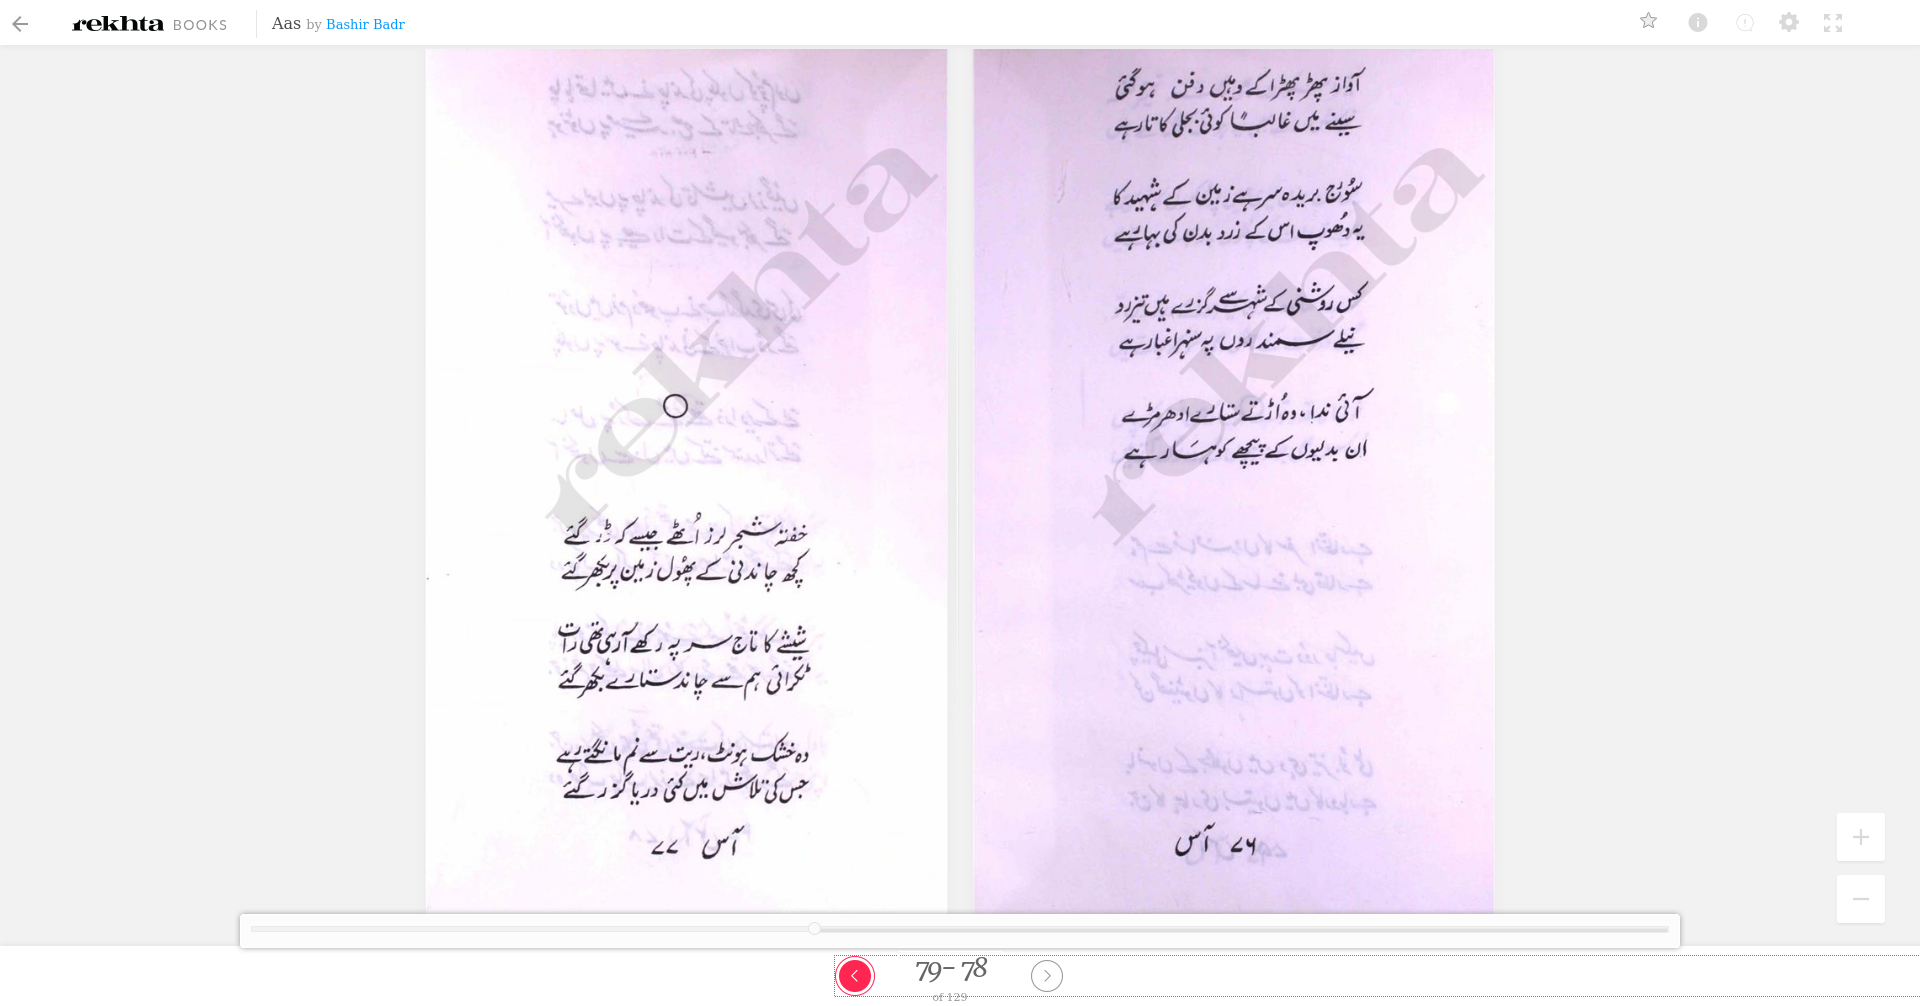 rekhta BOOKS Aas by Bashir Badr
آواز پھڑپھڑا کے وہیں دفن ہوگئی
سینے میں غالباً کوئی بجلی کا تار ہے
سُورج بریدہ سر ہے زمین کے شہید کا
یہ دُھوپ اس کے زرد بدن کی بہار ہے
کس روشنی کے شہر سے گزرے ہیں تیز رو
نیلے سمندروں پہ سنہرا غبار ہے
آئی ندا، وہ اُڑتے ستارے ادھر مڑے
ان بدلیوں کے پیچھے کوہسار ہے
۷۶ آس
rekhta
خفتہ شجر لرز اُٹھے جیسے کہ ڈر گئے
کچھ چاندنی کے پھول زمین پر بکھر گئے
شیشے کا تاج سر پہ رکھے آرہی تھی رات
ٹکرائی ہم سے چاند ستارے بکھر گئے
وہ خشک ہونٹ، ریت سے نم مانگتے رہے
جس کی تلاش میں کئی دریا گزر گئے
آس ۷۷
rekhta
79- 78
of 129